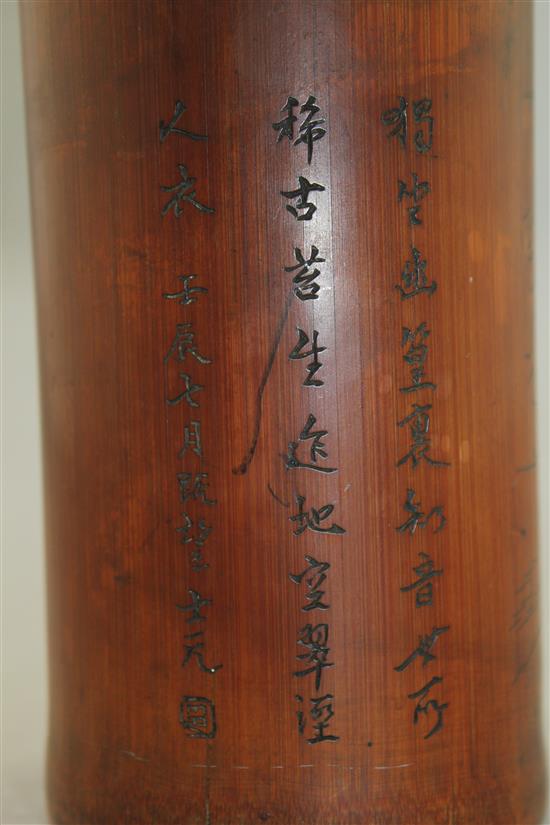 獨坐幽篁裏知音世所
稀古苔生迮地空翠溼
人衣 壬辰七月既望士元